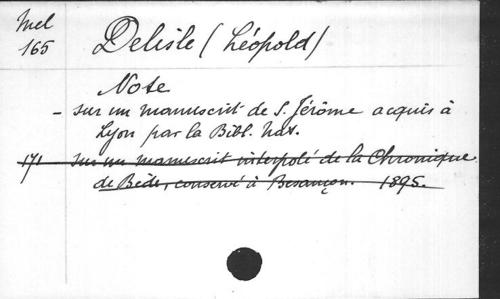 Mel
165
Delisle (Léopold)
Note
- sur un manuscrit de S. Jérôme acquis à
Lyon par la Bibl. Nat.
171 sur un manuscrit interpolé de la Chronique
de Bède, conservé à Besançon. 1895.